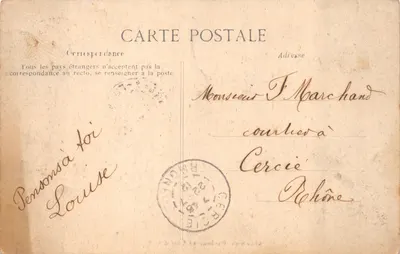 CARTE POSTALE
Correspondance
Tous les pays étrangers n'acceptent pas la
correspondance au recto, se renseigner à la poste
Adresse
Pensons à toi
Louise
Monsieur F Marchand
courtier à
Cercié
Rhône
CERCIÉ
RHONE